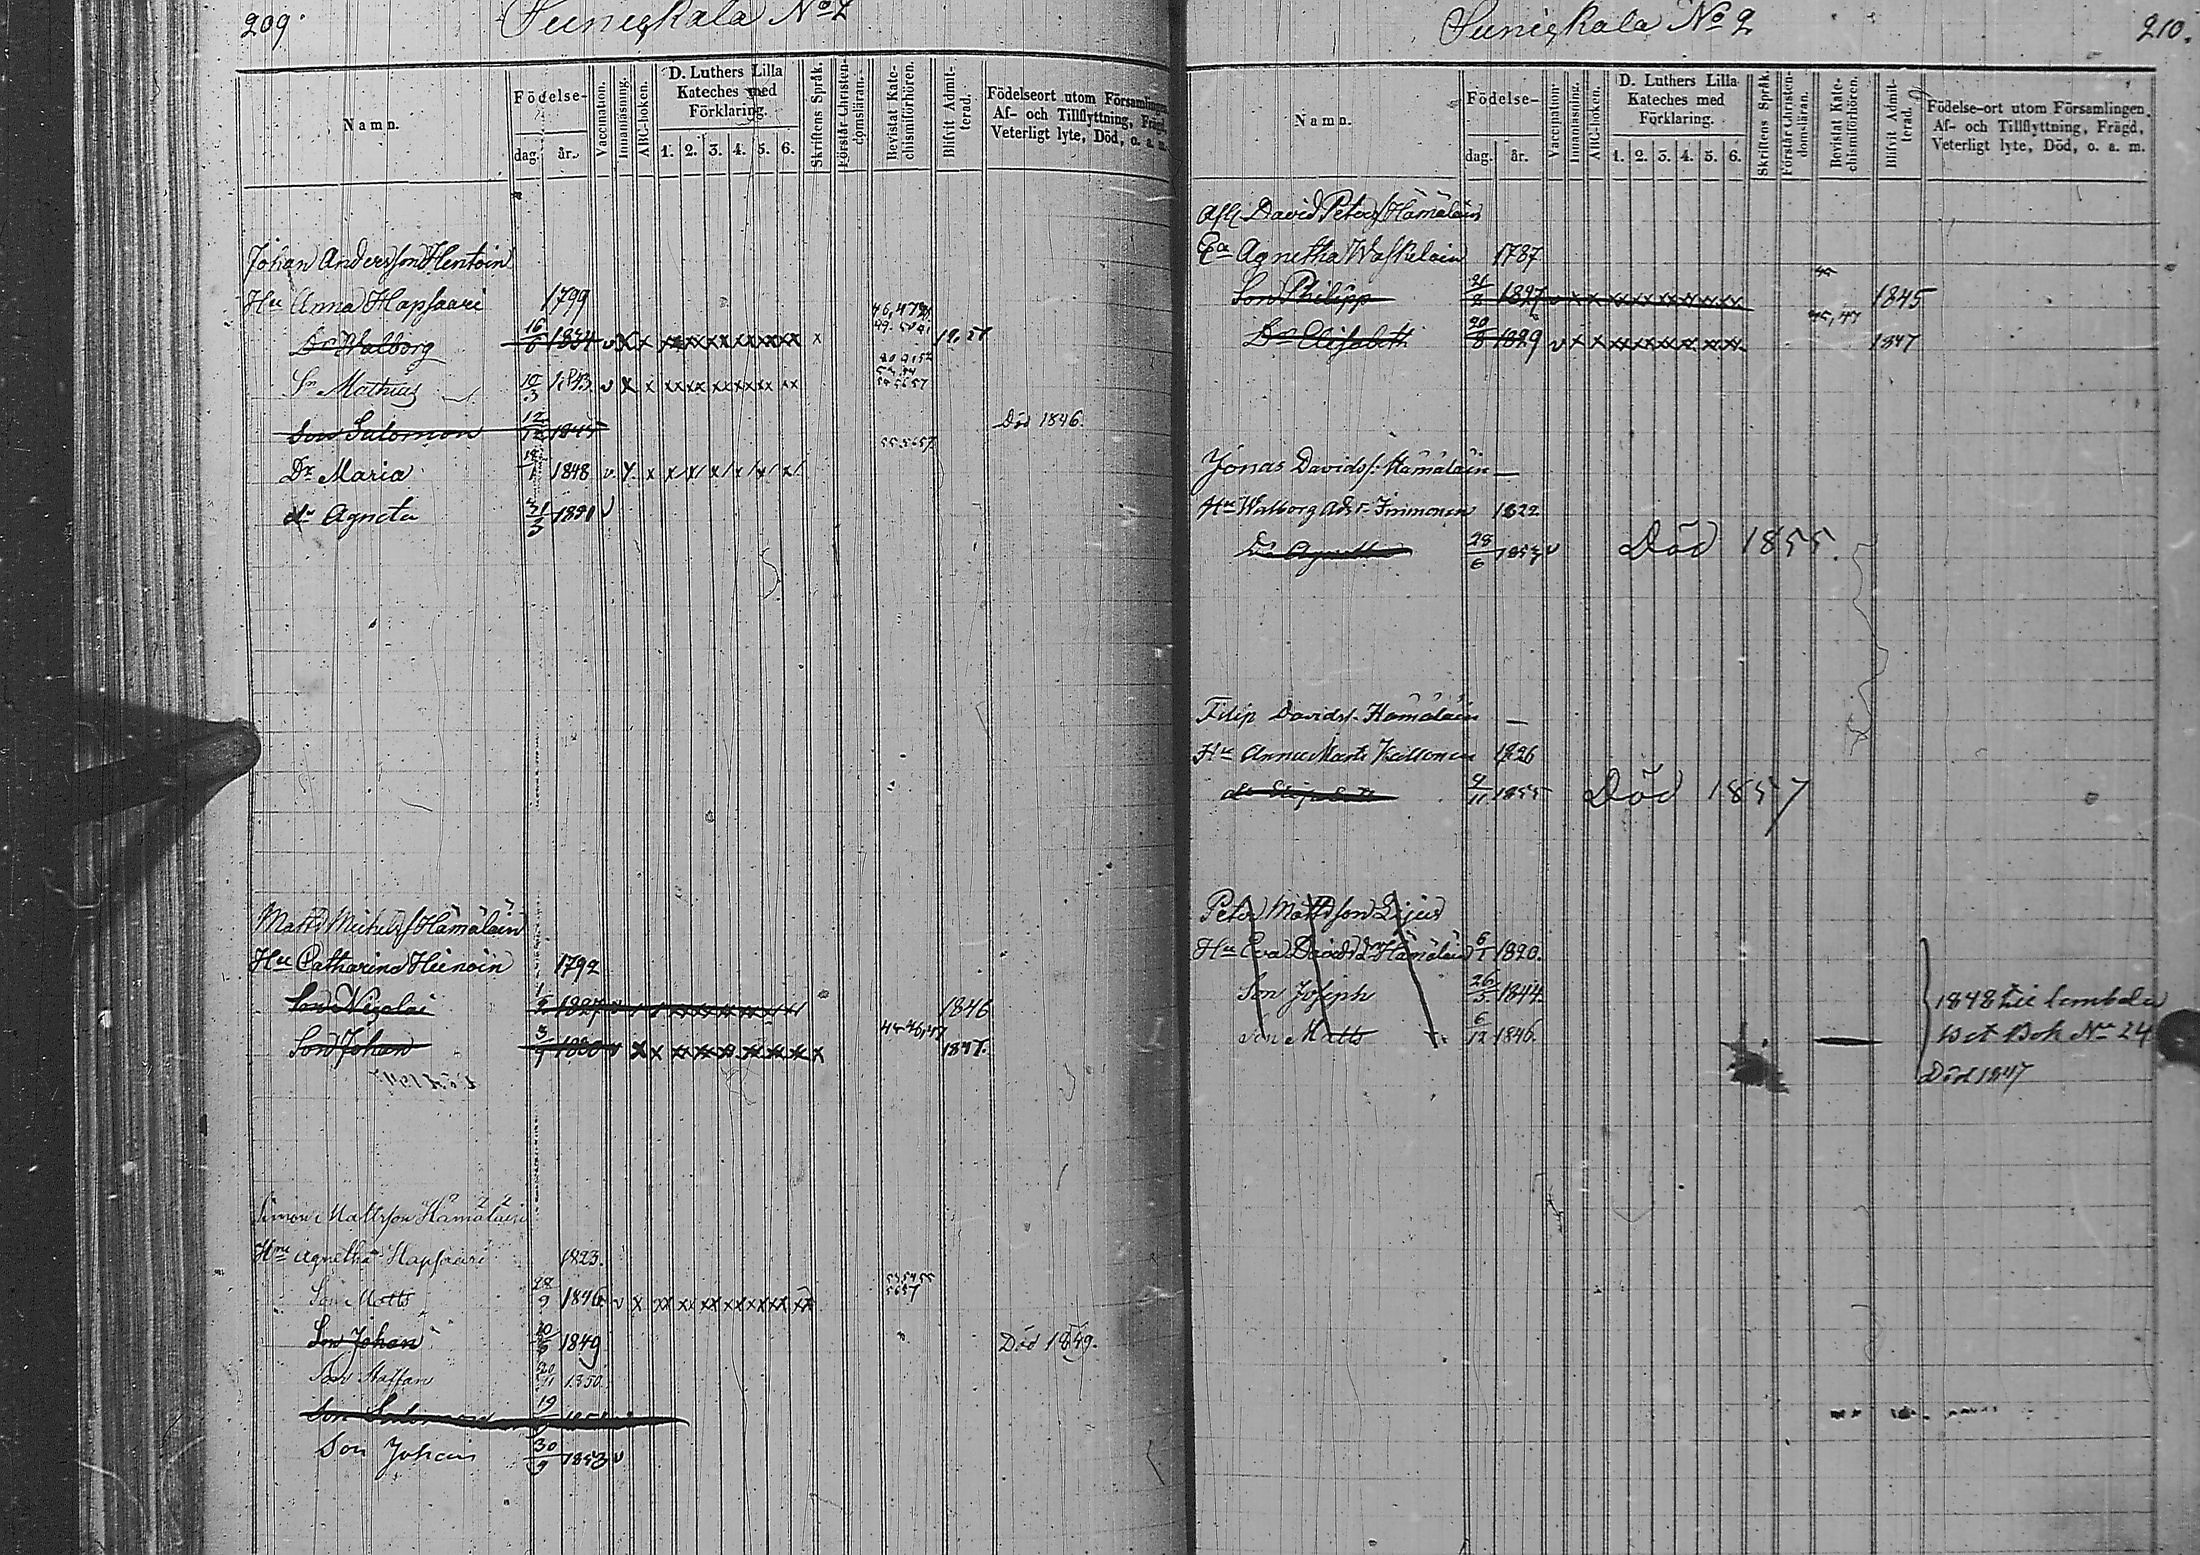 209.
Suniskala No 2
Namn.
Födelse-
dag. år.
Vaccination.
Innanläsning.
ABC-boken.
D. Luthers Lilla
Kateches med
Förklaring.
1. 2. 3. 4. 5. 6.
Skriftens Språk.
Förstår Christen-
domsläran.
Bevistat Kate-
chismiförhören.
Blifvit Admit-
terad.
Födelseort utom Församlingen,
Af- och Tillflyttning, Frägd,
Veterligt lyte, Död, o. a. m.
Johan Andersson Hentoin
Hu Anna Hapsaari 1799
Dr Walborg 16/6 1834 v x x xx xx xx xx xx xx x
Sn Mathias 10/3 1843 v x x xx xx xx xx xx xx 54 56 57
Son Salomon 12/12 1845 Död 1846.
Dr Maria 1848 v x x x/ x/ x/ x/ x/ x/ 55 56 57
dr Agneta 31/3 1851 v
Matts Michelss Hämäläin
Hu Catharina Heinoin 1792
Son Nigolai 1827 1846
Son Johan 3/9 1830 v x x xx xx xx xx xx xx x 45 46, 47 1847.
Simon Mattsson Hämäläin
Hru Agnetha Hapsaari 1823.
Son Matts 28/9 1846 v x xx xx xx xx xx xx 53 54 55 56 57
Son Johan 1849 Död 1849.
Son Staffan 20/11 1850.
Son Salomon 19
Son Johan 30/9 1853 v
Suniskala No 2
210.
Namn.
Födelse-
dag. år.
Vaccination.
Innanläsning.
ABC-boken.
D. Luthers Lilla
Kateches med
Förklaring.
1. 2. 3. 4. 5. 6.
Skriftens Språk.
Förstår Christen-
domsläran.
Bevistat Kate-
chismiförhören.
Blifvit Admit-
terad.
Födelse-ort utom Församlingen,
Af- och Tillflyttning, Frägd,
Veterligt lyte, Död, o. a. m.
Afl David Peters Hämäläin
Ea Agnetha Waskelain 1787
Son Philipp 1827 v x x xx xx xx xx xx xx 45 1845
Dr Elisabeth 20/8 1829 v x x xx xx xx xx xx xx 45, 47 1847
Jonas Davids: Hämäläin —
Hu Walborg Adsr. Jinimonen 1822
Dr Agnetha 28/6 1853 v Död 1855.
Filip Davids. Hämäläin —
Hu Anna Marts 1826
9/11 1855 Död 1857
Peter Mattsson Lijus
Hu Eva Davidsdr Hämäläin 1820.
Son Joseph 26/3 1844.
Son Matts 6/12 1846.
1848
Bok No 24
Död 1847